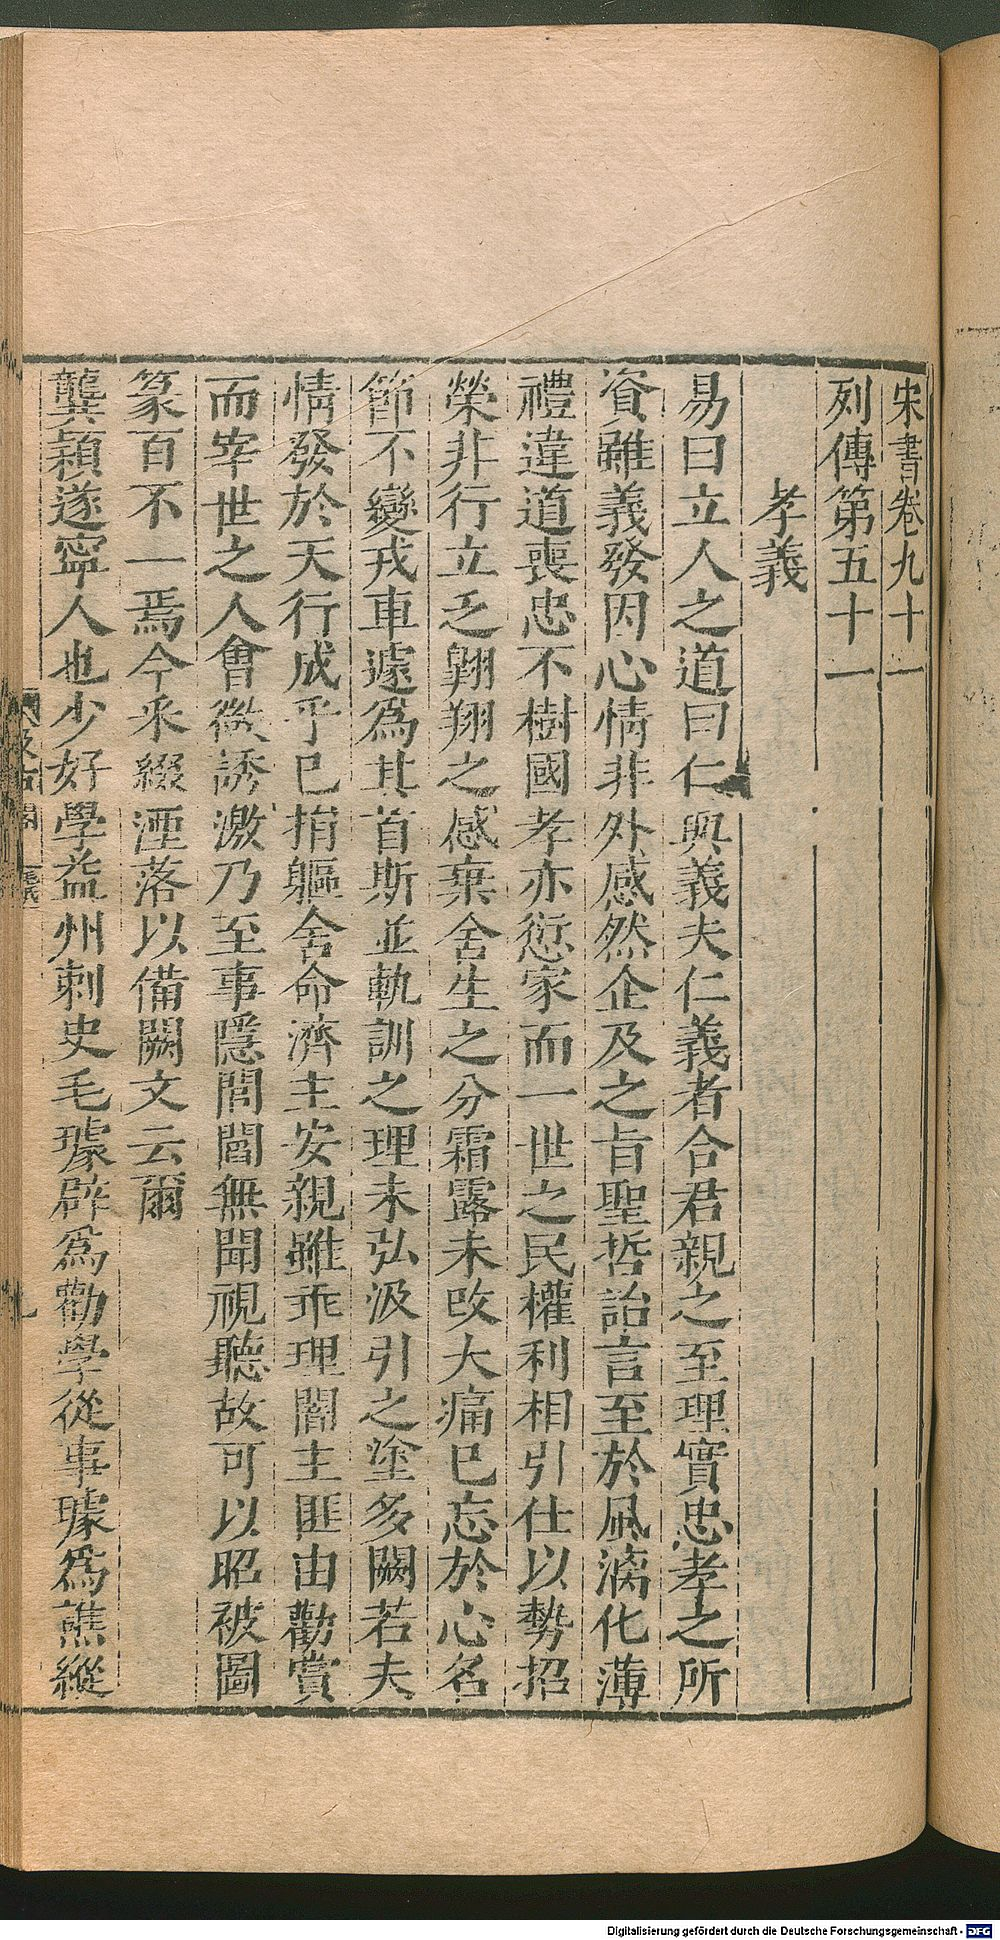 宋書卷九十一
列傳第五十一
孝義
易曰立人之道曰仁與義夫仁義者合君親之至理實忠孝之所
資雖義發因心情非外感然企及之旨聖哲詒言至於風漓化薄
禮違道喪忠不樹國孝亦愆家而一世之民權利相引仕以勢招
榮非行立乏翱翔之感棄舍生之分霜露未改大痛已忘於心名
節不變戎車遽爲其首斯並軌訓之理未弘汲引之塗多闕若夫
情發於天行成乎已捐軀舍命濟主安親雖乖理闇主匪由勸賞
而宰世之人曾微誘激乃至事隱閭閻無聞視聽故可以昭被圖
篆百不一焉今采綴湮落以備闕文云爾
龔穎遂寧人也少好學益州刺史毛璩辟爲勸學從事璩爲譙縱
Digitalisierung gefördert durch die Deutsche Forschungsgemeinschaft - DFG